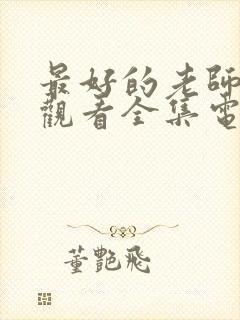 最好的老師
觀看全集電
董艷飛